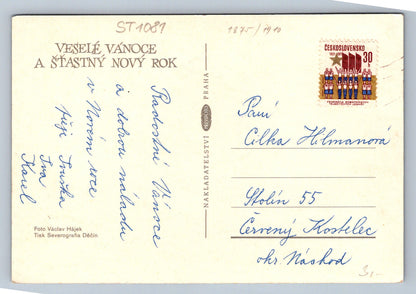 ST1081
1875/1910
VESELÉ VÁNOCE
A ŠŤASTNÝ NOVÝ ROK
Radostné Vánoce
a dobrou náladu
v Novém roce
přeje Soušta
Iva
Karel
Foto Václav Hájek
Tisk Severografia Děčín
NAKLADATELSTVÍ PRAHA
ČESKOSLOVENSKO
30
h
Paní
Cilka Hilmanová
Stolín 55
Červený Kostelec
okr. Náchod